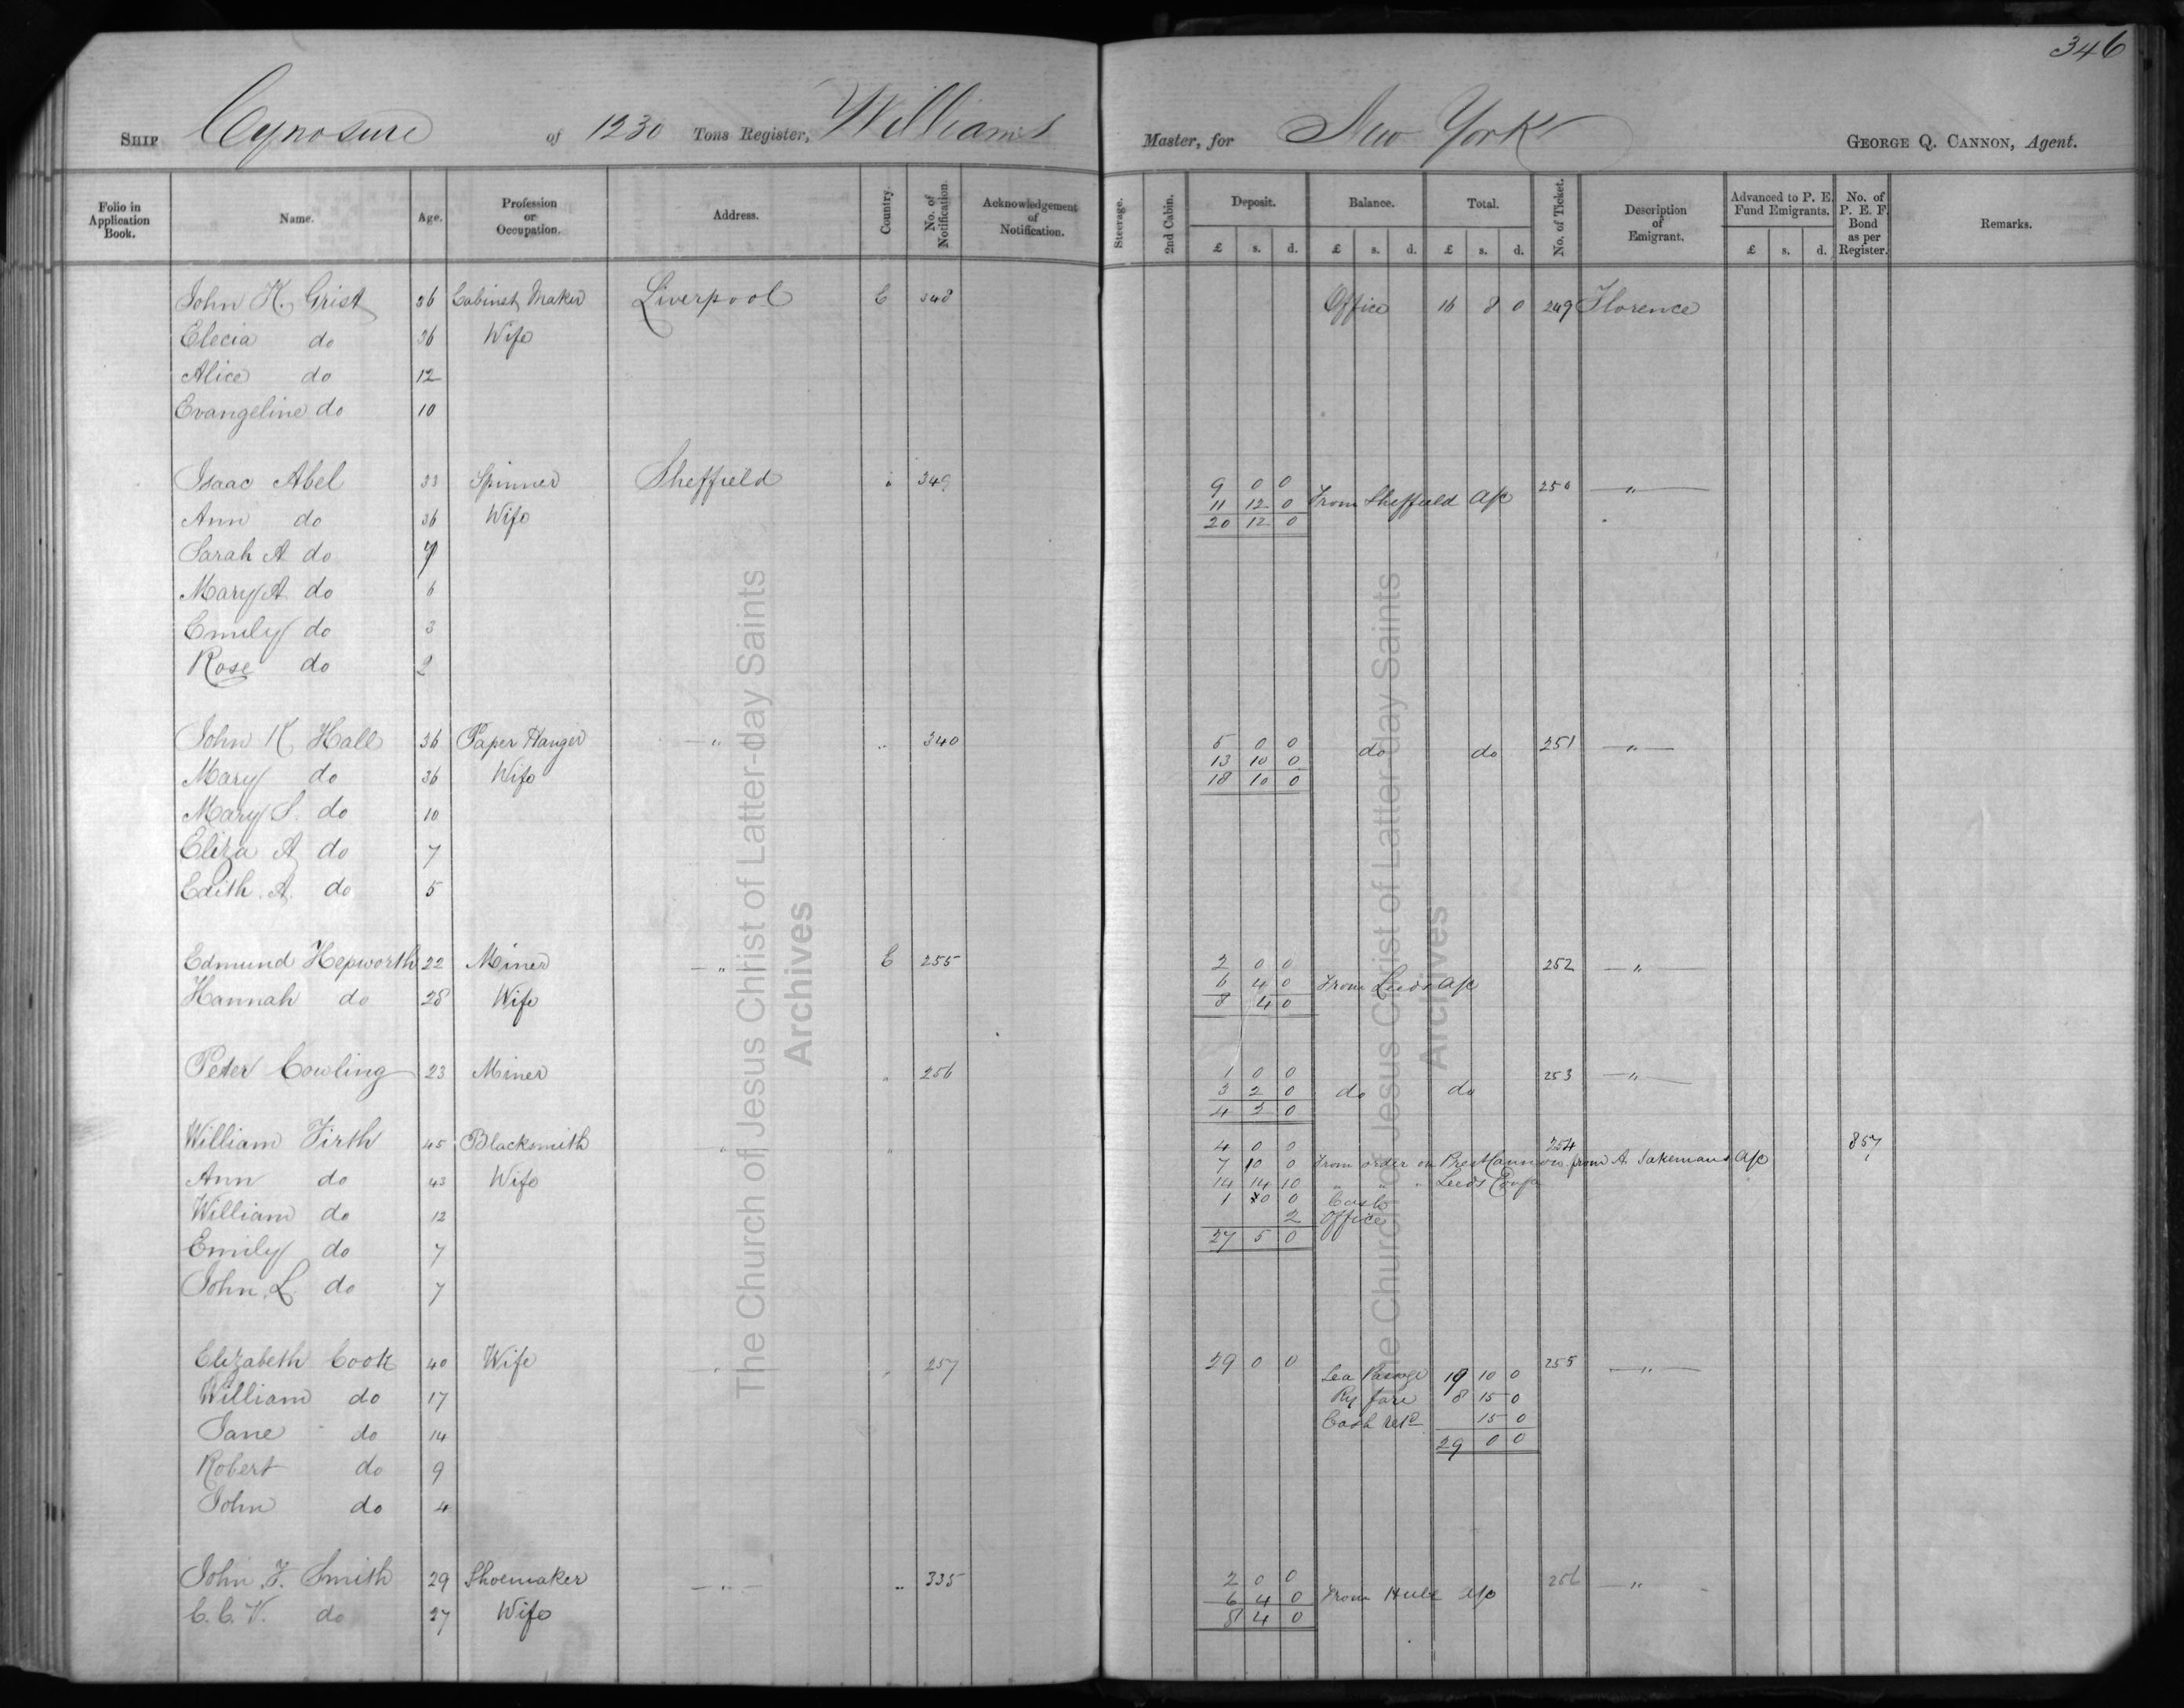 346
SHIP Cynosure of 1230 Tons Register, Williams Master, for New York GEORGE Q. CANNON, Agent.
Folio in Application Book. Name. Age. Profession or Occupation. Address. Country. No. of Notification. Acknowledgement of Notification. Steerage. 2nd Cabin. Deposit. Balance. Total. No. of Ticket. Description of Emigrant. Advanced to P. E. Fund Emigrants. No. of P. E. F. Bond as per Register. Remarks.
£ s. d. £ s. d. £ s. d. £ s. d.
John H. Grist 36 Cabinet Maker Liverpool E 348 Office 16 8 0 249 Florence
Elecia do 36 Wife
Alice do 12
Evangeline do 10
Isaac Abel 33 Spinner Sheffield " 349 9 0 0 250 — " —
11 12 0 From Sheffield A/c
Ann do 36 Wife 20 12 0
Sarah A do 9
Mary A. do 6
Emily do 3
Rose do 2
John K Hall 36 Paper Hanger — " " 340 5 0 0 do do 251 — " —
13 10 0
Mary do 36 Wife 18 10 0
Mary S. do 10
Eliza A do 7
Edith A. do 5
Edmund Hepworth 22 Miner — " E 255 2 0 0 252 — " —
6 4 0 From Leeds A/c
Hannah do 28 Wife 8 4 0
Peter Cowling 23 Miner " 256 1 0 0 253 — " —
3 2 0 do do
4 2 0
William Firth 45 Blacksmith — " " 4 0 0 254 857
7 10 0 From order on Prest Cannon from A. Jakemans A/c
Ann do 43 Wife 14 14 10 " " " Leeds
1 0 0 Cash
William do 12 2 Office
Emily do 7 27 5 0
John L. do 7
Elizabeth Cook 40 Wife " " 257 29 0 0 255 — " —
Sea Passage 19 10 0
William do 17 Ry fare 8 15 0
Cash retd 15 0
Jane do 14 29 0 0
Robert do 9
John do 4
John F. Smith 29 Shoemaker — " — " 335 2 0 0 256 — "
6 4 0 From Hull A/c
C. C. V. do 27 Wife 8 4 0
The Church of Jesus Christ of Latter-day Saints
Archives
The Church of Jesus Christ of Latter-day Saints
Archives